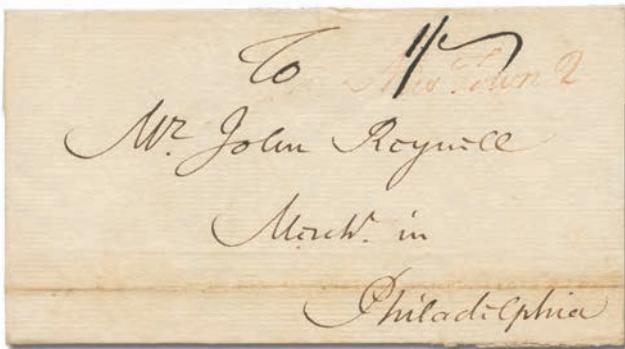 To 1/ New Town 2
Mr. John Reynell
Mercht. in
Philadelphia